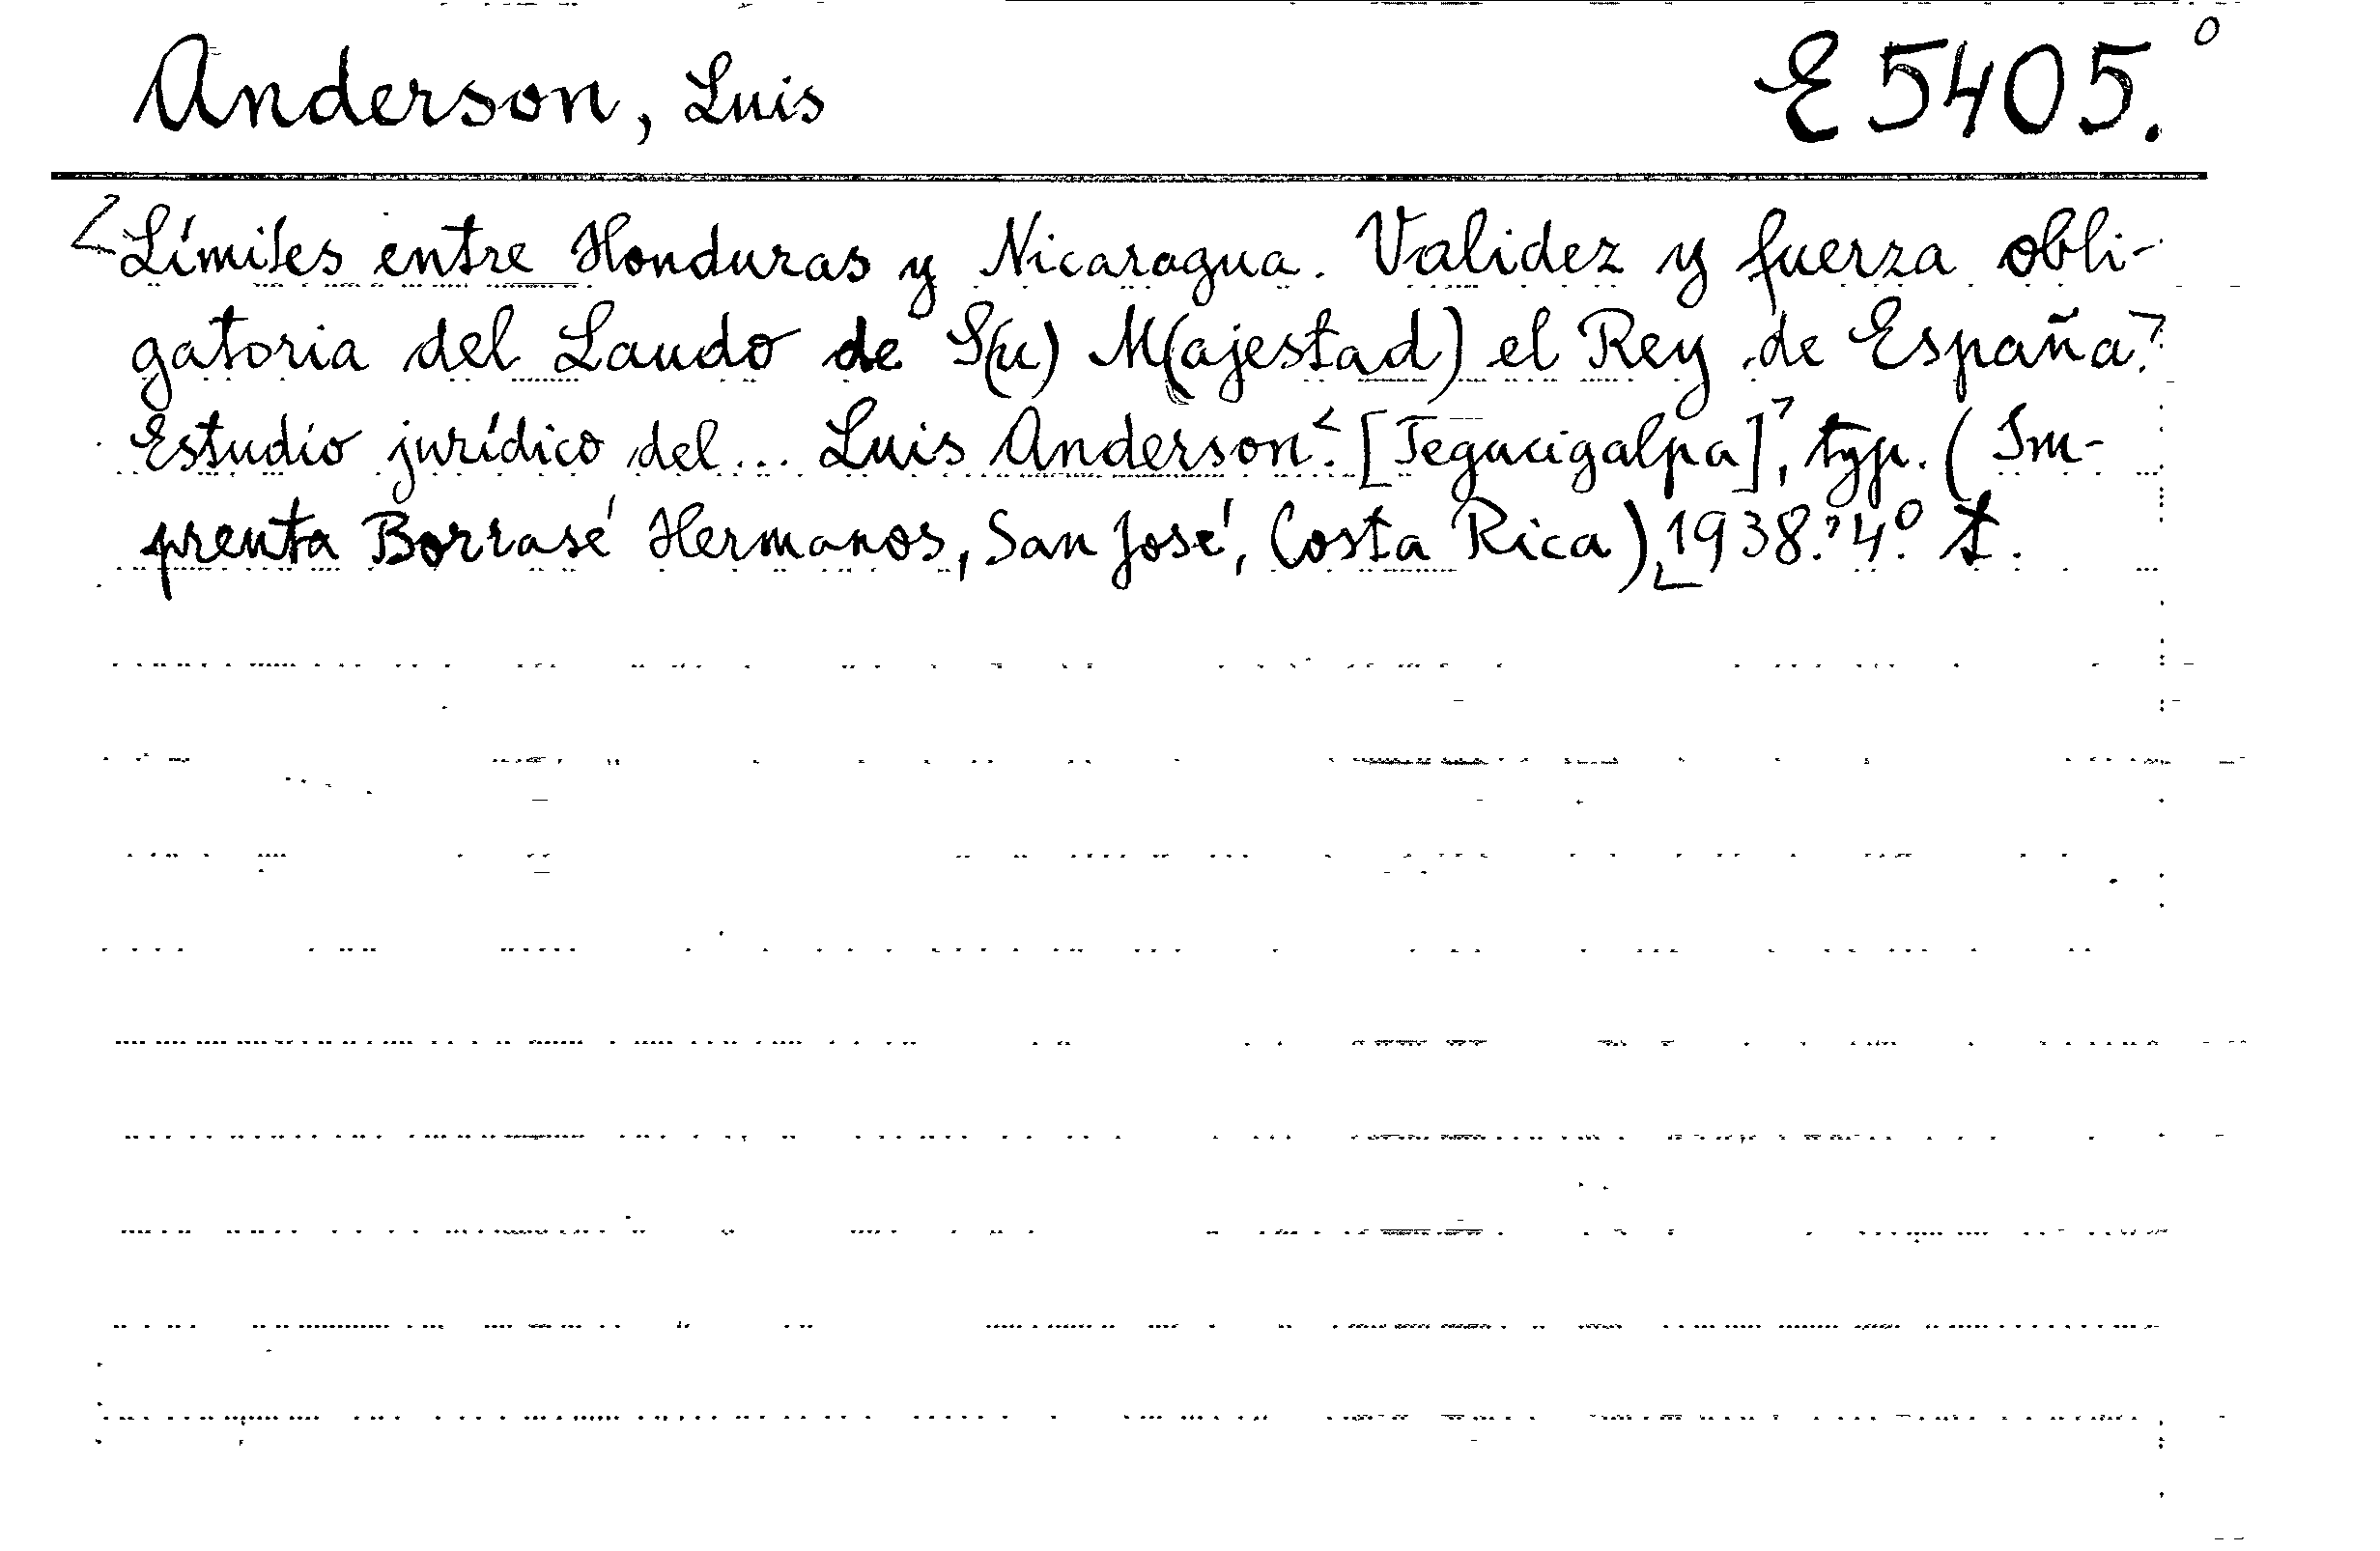 Anderson, Luis E 5405.º
Límites entre Honduras y Nicaragua. Validez y fuerza obli-
gatoria del Laudo de S(u) M(ajestad) el Rey de España.
Estudio jurídico del... Luis Anderson. [Tegucigalpa], typ. (Im-
prenta Borrasé Hermanos, San José, Costa Rica) 1938. 4.º